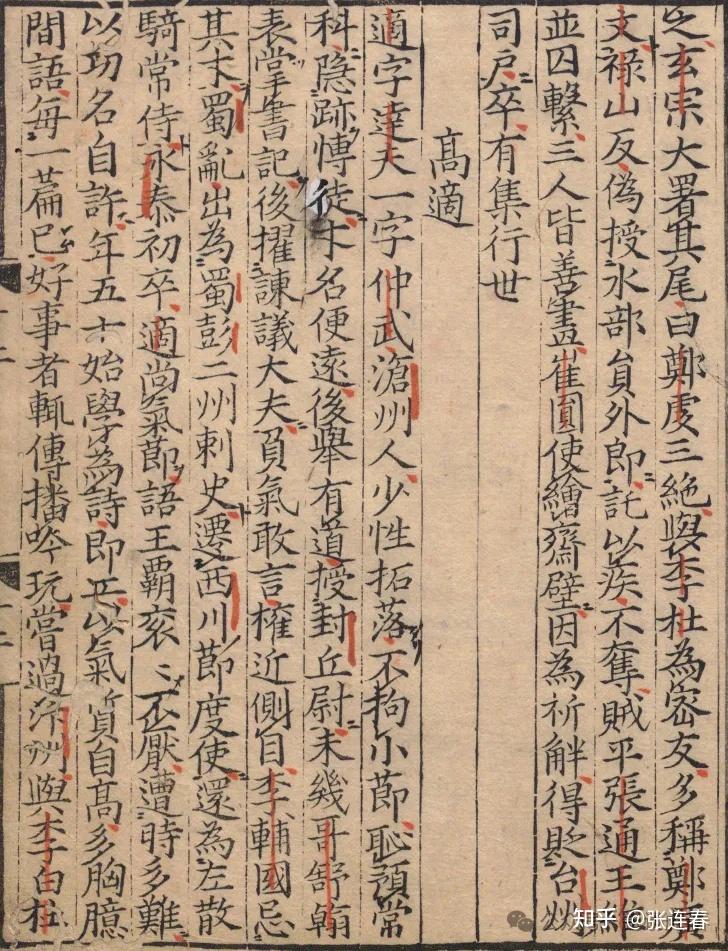 之玄宗大署其尾曰鄭虔三絶與李杜為密友多稱鄭廣
文禄山反偽授水部貟外郎託以疾不奪賊平張通王維
並囚繋三人皆善畫崔圓使繪齋壁因為祈觧得貶台州
司戸卒有集行世
高適
適字逹夫一字仲武滄州人少性拓落不拘小節恥預常
科隠跡愽徒才名便遠後舉有道授封丘尉未幾哥舒翰
表掌書記後擢諫議大夫負氣敢言權近側目李輔國忌
其才蜀亂出為蜀彭二州刺史遷西川節度使還為左散
騎常侍永泰初卒適尚氣節語王覇衮〻不厭遭時多難
以功名自許年五十始學為詩即工以氣質自髙多胸臆
間語毎一篇已好事者輒傳播吟玩嘗過汴州與李白杜
知乎 @张连春